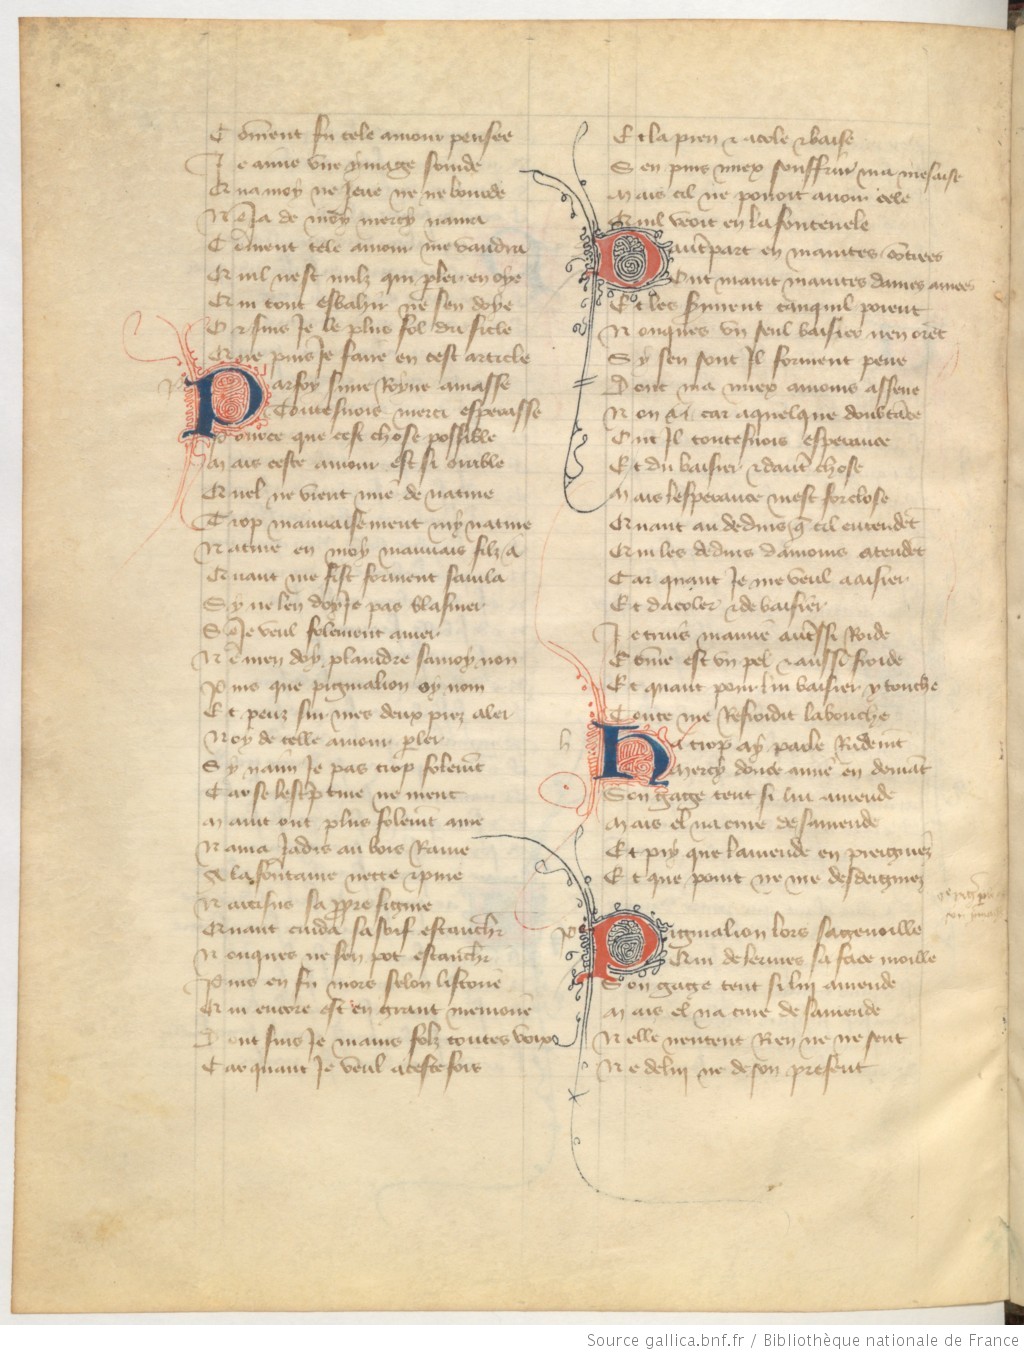 Coment fu cele amour pensee
Je aime une ymage sourde
Qua moy ne jeue ne ne bourde
Ne ja de moy mercy naura
Coment tele amour me vaudra
Quil nest nulz qui pler en oye
Qui tout esbahir ne sen doye
Or suis je le plus fol du sicle
Que puis je faire en cest article
Parfoy sune Royne amasse
Toutesuois merci esperasse
Pource que cest chose possible
Mais ceste amour est si orible
Quel ne vient mie de nature
Trop mauvaisement my nature
Nature en moy mauvais filz a
Quant me fist forment savila
Sy ne len doy je pas blasmer
Se je veul folement amer
Ne men doy plaindre samoy non
Puis que pigmalion oy nom
Et peuz sur mes deux piez aler
Noy de telle amour pler
Sy naim je pas trop folemt
Car se lescpture ne ment
Maint ont plus folemt ame
Nama jadis au bois Rame
A la fontaine nette et pure
Narcisus sa ppre figure
Quant cuida sa soif estanchr
Nonques ne sen pot estanchr
Puis en fu mors selon listoire
Qui encore est en grant memoire
Dont suis je mains folz toutes voix
Car quant je veul a ceste fois
Et la pren et acole et baise
Sen puis miex souffrir ma mesaise
Mais cil ne pouoit avoir cele
Quil veoit en la fontenele
Dautrepart en maintes cotrees
Ont maint maintes dames amees
Et les syment tanquil porent
Nonques un seul baisier nen oret
Sy sen sont il forment pene
Dont ma miex amours assene
Non ai car a quelque doubtace
Ont il toutesuois esperance
Et du baisier et daut chose
Mais lesperance mest forclose
Quant au deduis que cil entendet
Qui les deduis damours atendet
Car quant je me veul aaisier
Et dacoler et de baisier
Je truis mamie autssi Roide
Come est un pel et aussi froide
Et quant pour lui baisier y touche
Toute me Refroidit la bouche
Ha trop ay parle Rudemt
Mercy douce amie en demat
Son gage tent si lui amende
Mais el na cure de samende
Et pry que lamende en preignez
Et que point ne me desdeignez
Pigmalion lors sagenoille
Qui de lermes sa face moille
Son gage tent si lui amende
Mais el na cure de samende
Nelle nentent Rien ne ne sent
Ne de lui ne de son present
Source gallica.bnf.fr / Bibliothèque nationale de France